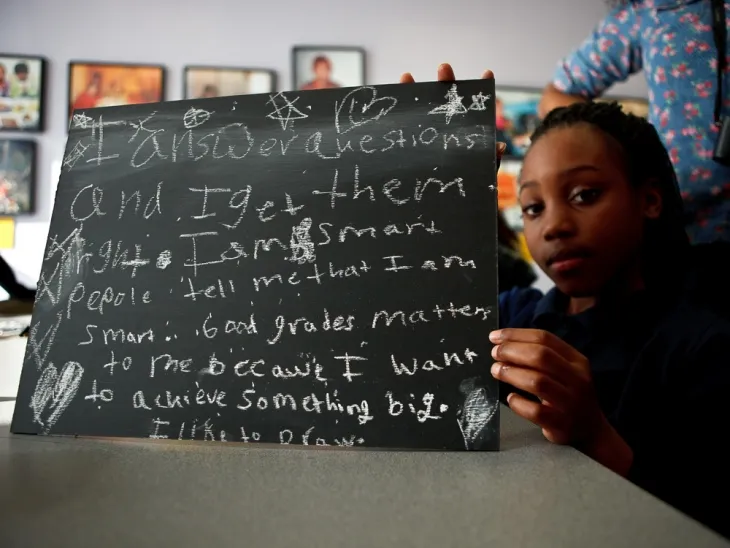 I answer questions
and I get them
right. I am smart
pepole tell me that I am
smart.. Good grades matters
to me becaute I want
to achieve something big.
I like to Draw.